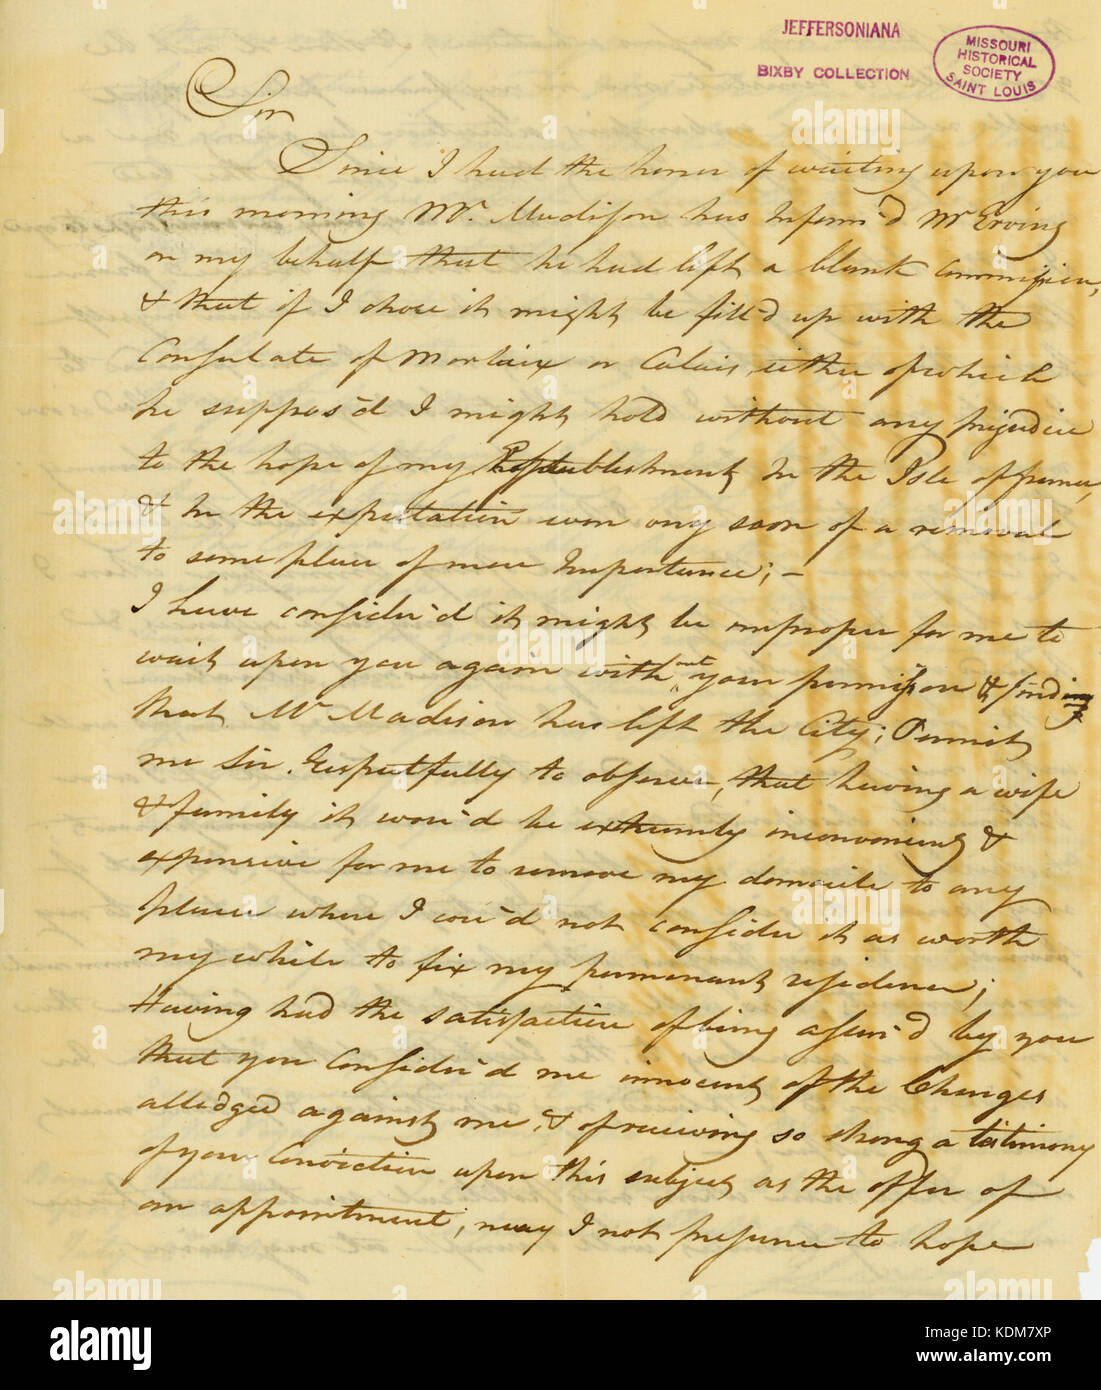 JEFFERSONIANA
BIXBY COLLECTION
MISSOURI
HISTORICAL
SOCIETY
SAINT LOUIS
Sir
Since I had the honor of waiting upon you
this morning Mr. Madison has Inform'd Mr Erving
on my behalf that he had left a blank Commission,
& that if I chose it might be fill'd up with the
Consulate of Morlaix or Calais, either of which
he suppos'd I might hold without any prejudice
to the hope of my Restablishment in the Isle of france,
& in the expectation even any soon of a removal
to some place of more Importance; –
I have consider'd it might be improper for me to
wait upon you again without your permission & finding
that Mr Madison has left the City; Permit
me Sir. Respectfully to observe, that having a wife
& family it wou'd be extremely inconvenient &
expensive for me to remove my domicile to any
place where I cou'd not consider it as worth
my while to fix my permanent residence;
Having had the satisfaction of being assur'd by you
that you Consider'd me innocent of the Charges
alledged against me, & of receiving so strong a testimony
of your Conviction upon this subject as the offer of
an appointment, may I not presume to hope
alamy
Image ID: KDM7XP
www.alamy.com